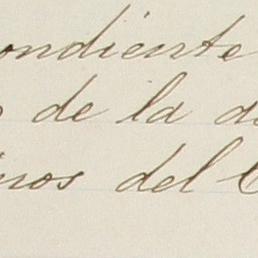 ondiente
de la d
inos del C